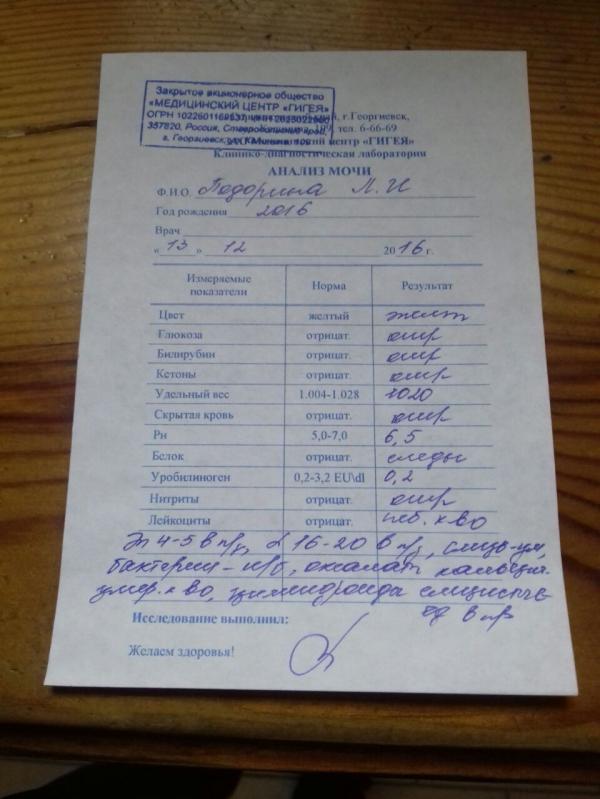 Закрытое акционерное общество
«МЕДИЦИНСКИЙ ЦЕНТР «ГИГЕЯ»
ОГРН 1022601169537
357820, Россия, Ставропольский край, г.Георгиевск,
г. Георгиевск, 109, тел. 6-66-69
Медицинский центр «ГИГЕЯ»
Клинико-диагностическая лаборатория
АНАЛИЗ МОЧИ
Ф.И.О. Подорина Л. И
Год рождения 2016
Врач
« 13 » 12 2016 г.
Измеряемые показатели Норма Результат
Цвет желтый желт
Глюкоза отрицат. отр
Билирубин отрицат. отр
Кетоны отрицат. отр
Удельный вес 1.004-1.028 1020
Скрытая кровь отрицат. отр
Рн 5,0-7,0 6,5
Белок отрицат. следы
Уробилиноген 0,2-3,2 EU\dl 0,2
Нитриты отрицат. отр
Лейкоциты отрицат. неб. к-во
Эп 4-5 в п/з, L 16-20 в п/з, слизь-ум,
бактерии - н/б, оксалат кальция-
умер. к-во, цилиндроиды слизистые
ед в п/з
Исследование выполнил:
Желаем здоровья!